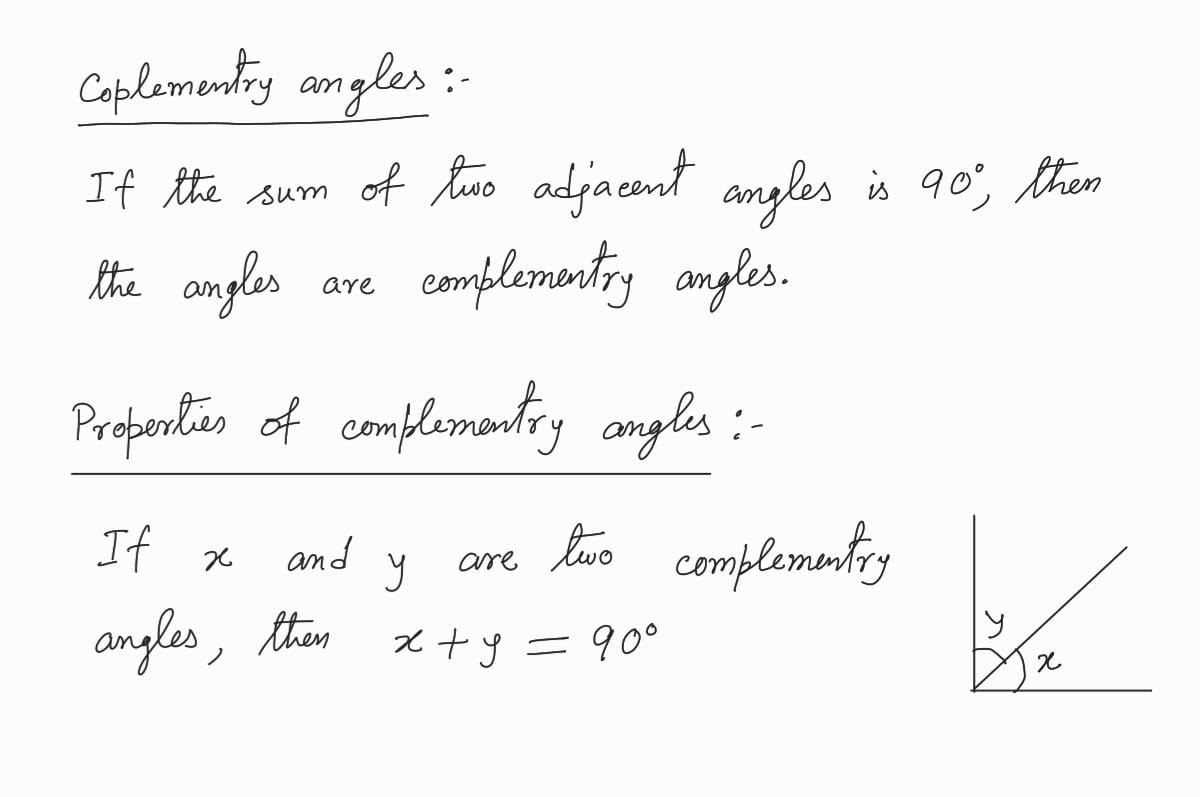 Coplementry angles :-
If the sum of two adjacent angles is 90°, then
the angles are complementry angles.
Properties of complementry angles :-
If x and y are two complementry
angles, then x + y = 90°
y
x